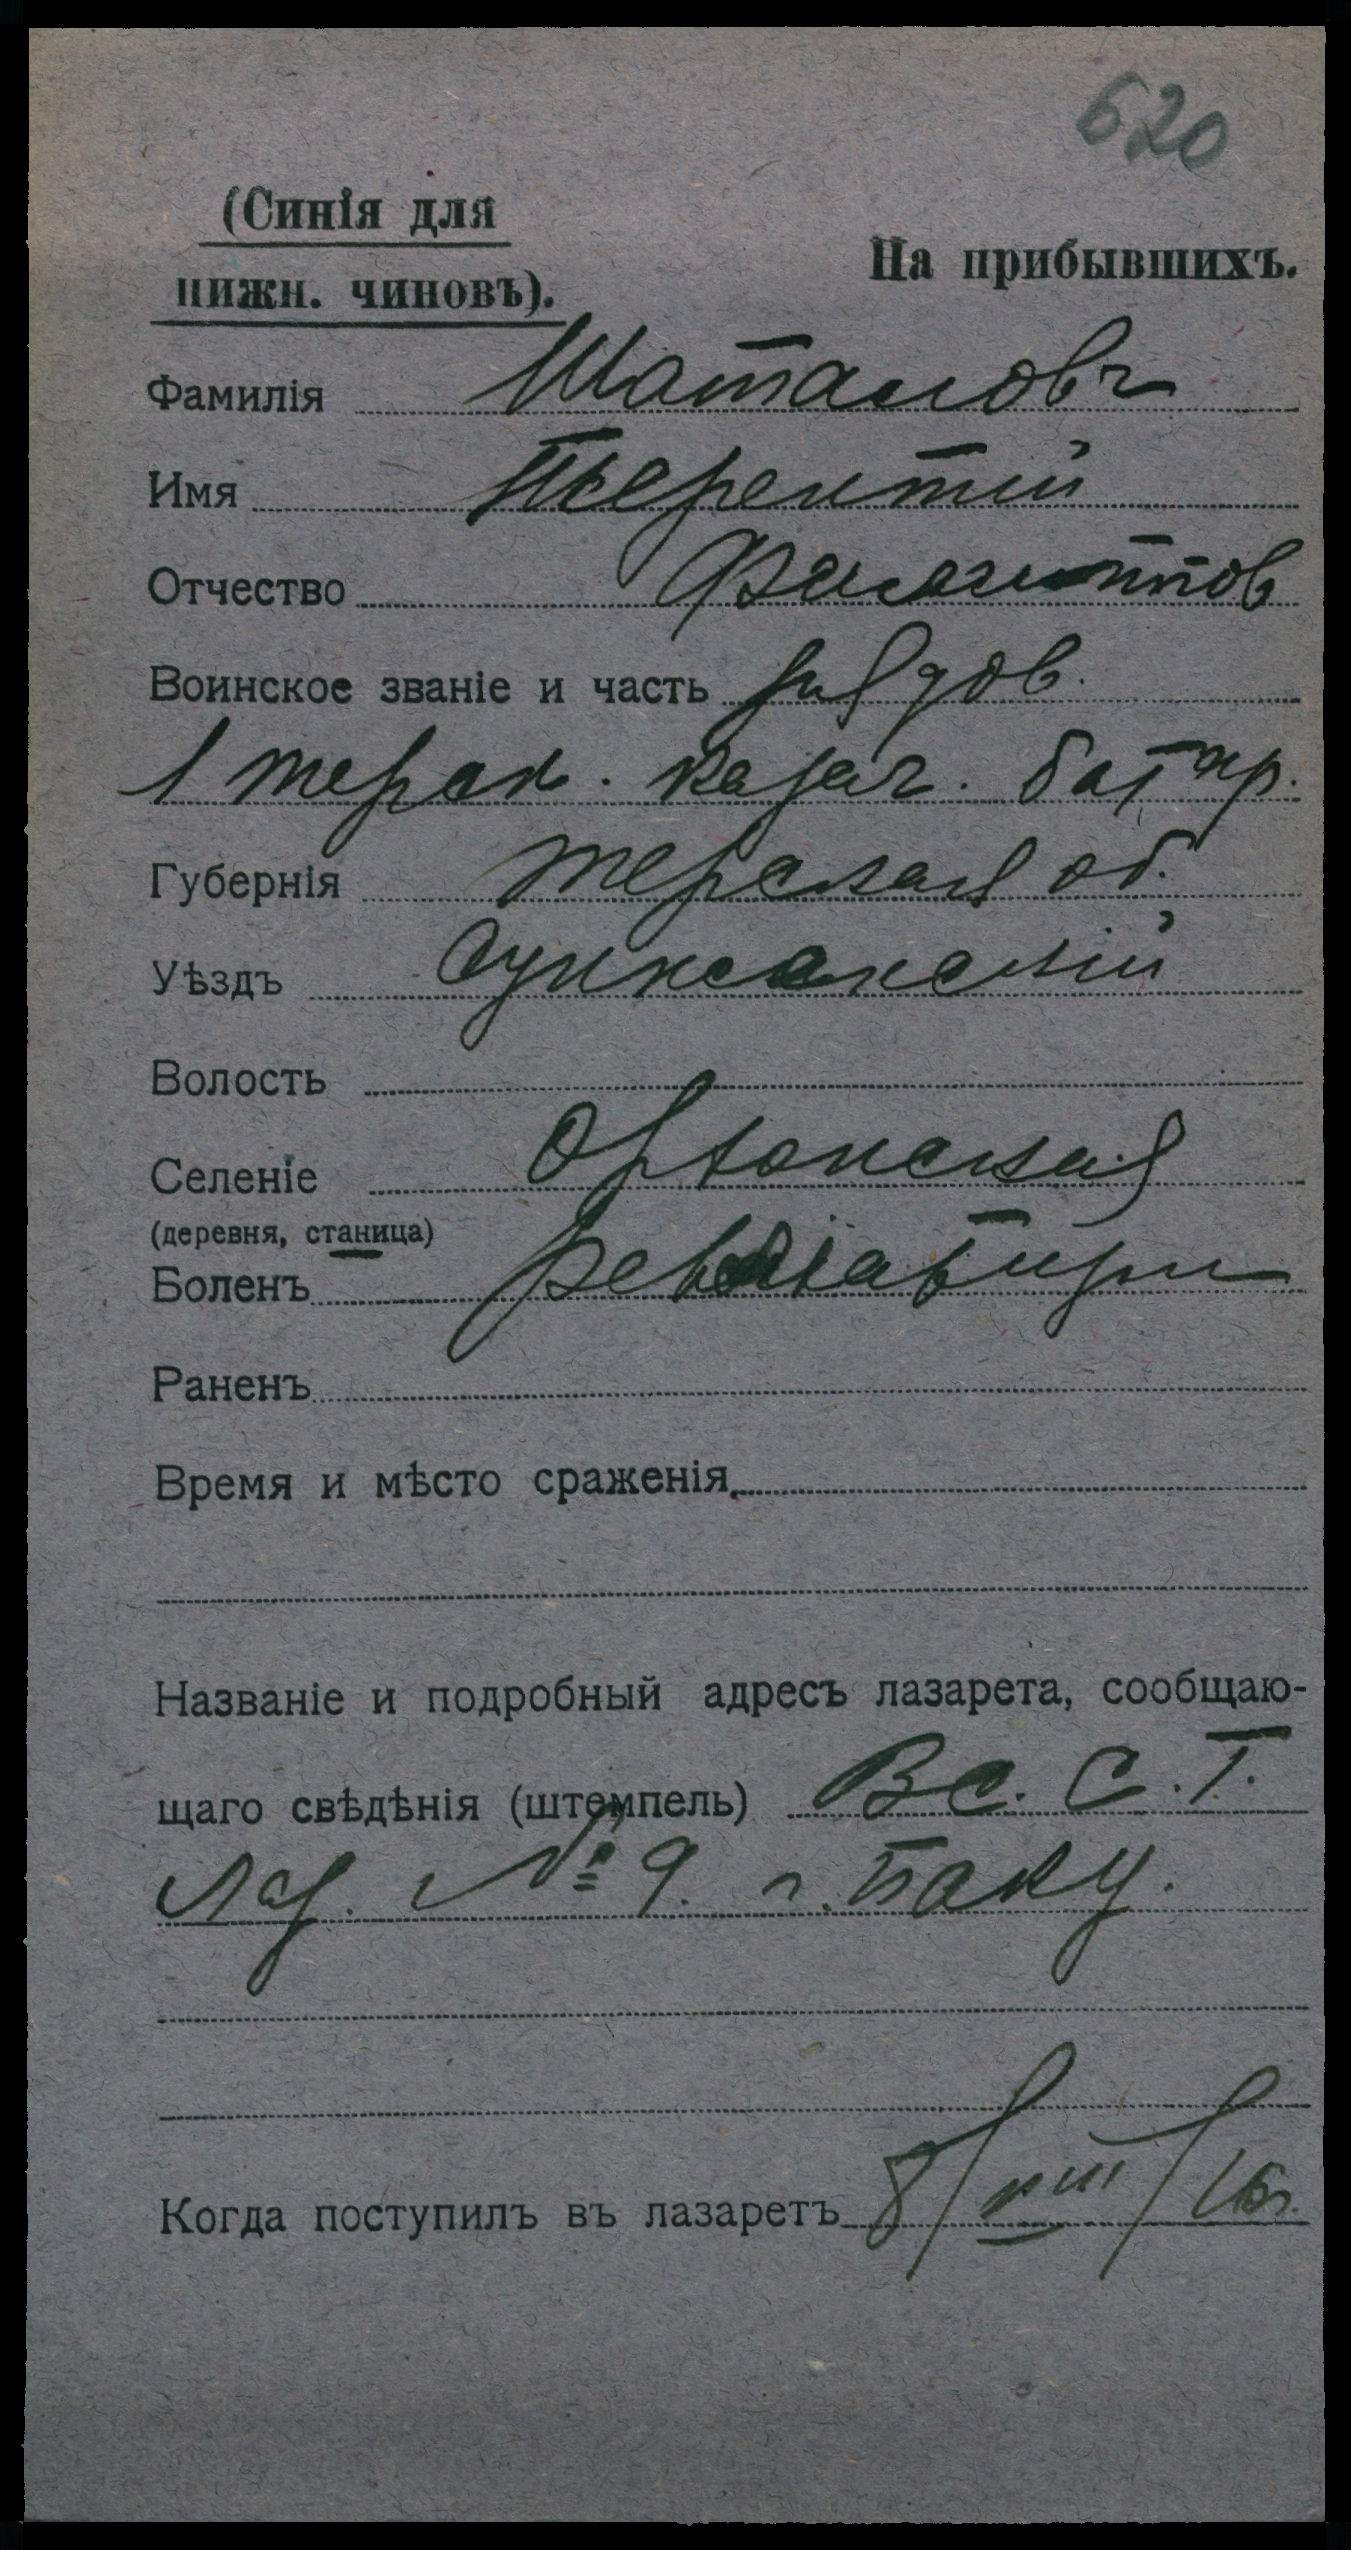 620
(Синія для
нижн. чиновъ).
На прибывшихъ.
Фамилія Шаталовъ
Имя Терентій
Отчество
Воинское званіе и часть рядов.
1 терск. казач. батар.
Губернія терская об.
Уѣздъ Сунженскій
Волость
Селеніе
(деревня, станица)
Боленъ
Раненъ
Время и мѣсто сраженія
Названіе и подробный адресъ лазарета, сообщаю-
щаго свѣдѣнія (штемпель) Вс. С. Г.
Лаз. № 9. г. Баку.
Когда поступилъ въ лазаретъ 8/VIII/16г.